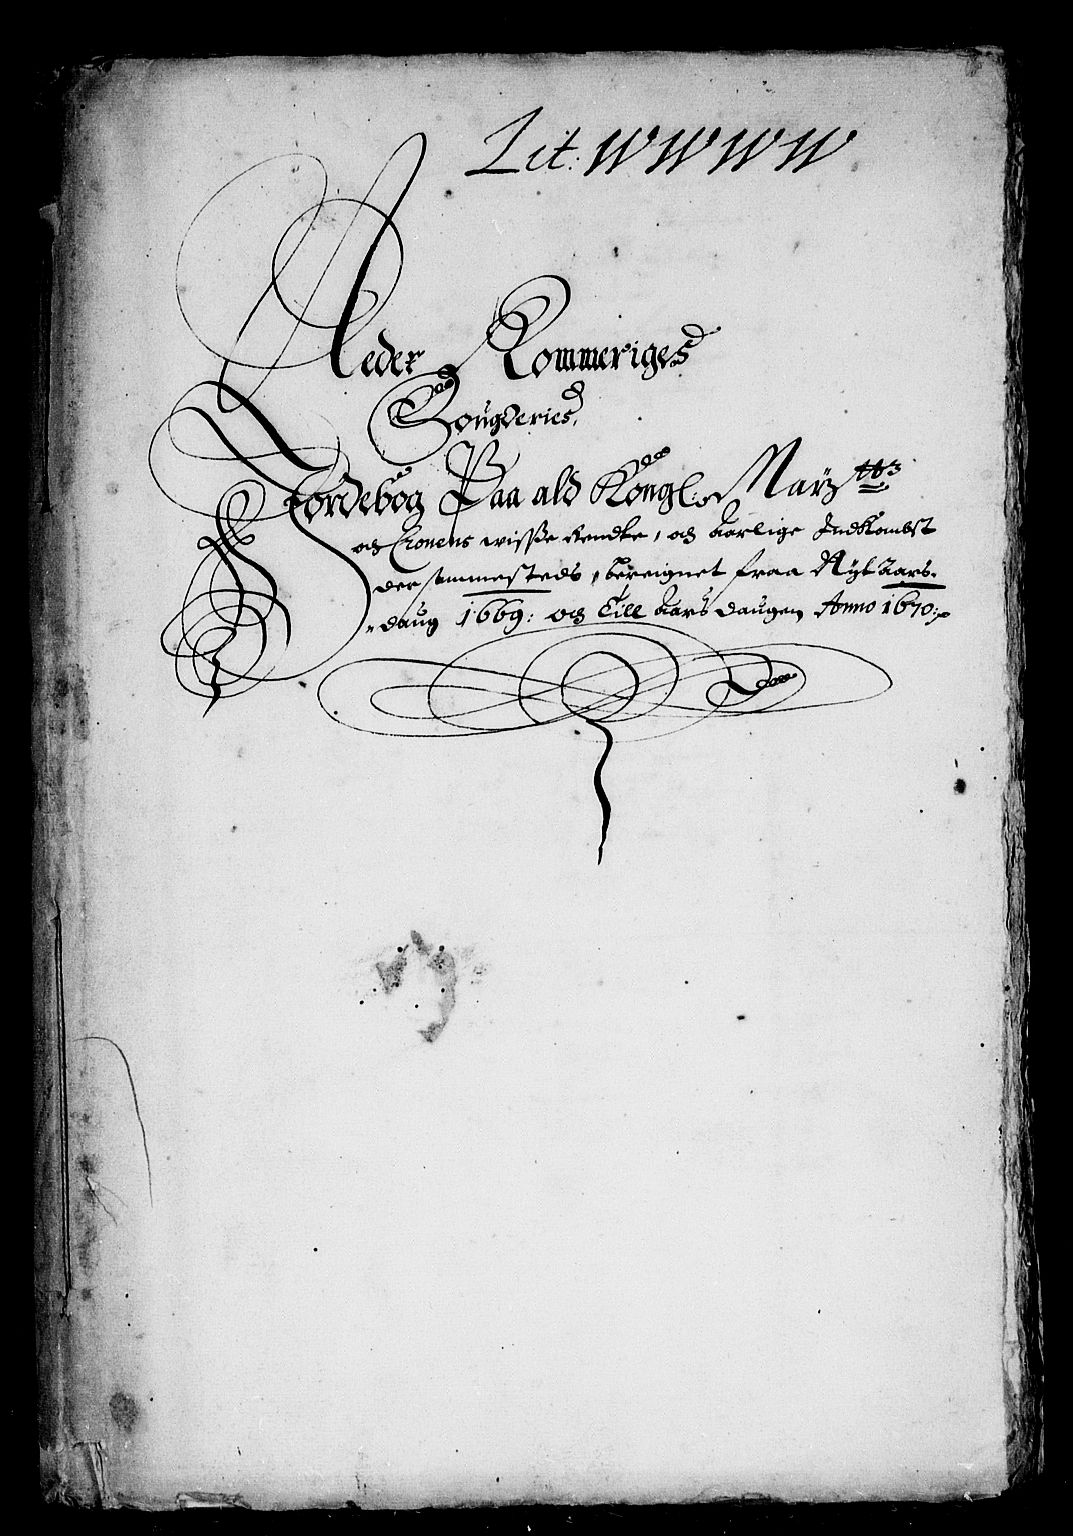 Lit: WWWW
Neder Rommeriges
Fougderies,
Jordebog Paa ald Kongl: Maÿ:ttz
och Cronens wisse Rendte, och Aarlige Indkombst
der sammesteds, bereignet fraa Nyt Aars-
daug 1669: och till Aars daugen Anno 1670: